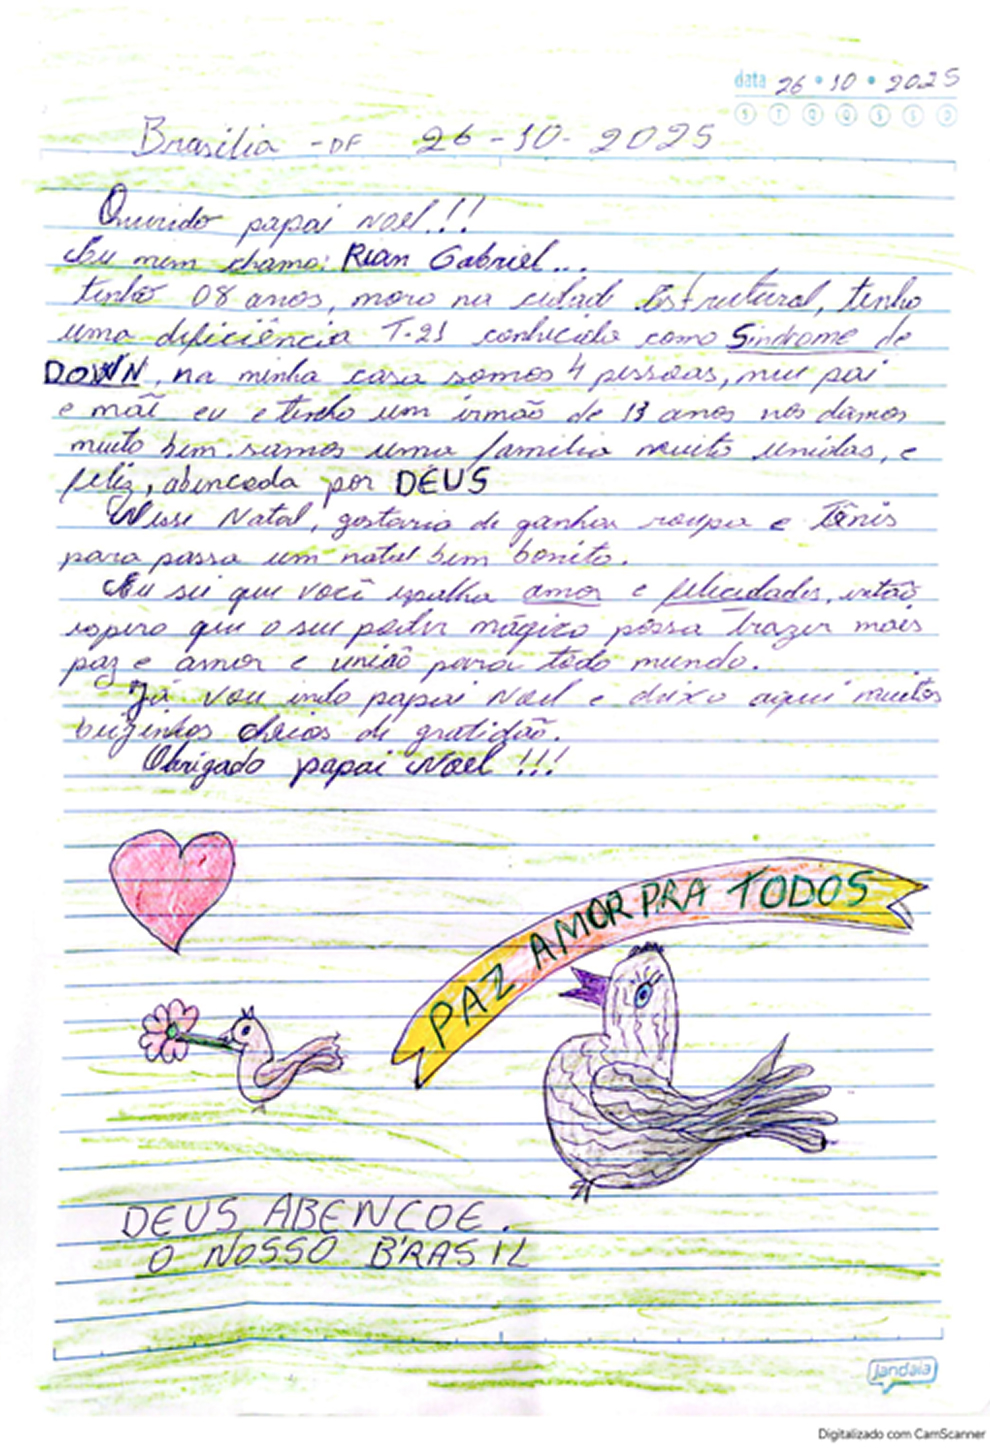 data 26 • 10 • 2025
S T Q Q S S D
Brasilia - DF 26-10-2025
Querido papai noel!!
Eu mem chamo: Rian Gabriel...
tenho 08 anos, moro na cidade Estrutural, tenho
uma deficiência T-21 conhecida como Sindrome de
DOWN, na minha casa somos 4 pessoas, meu pai
e mãe eu e tenho um irmão de 13 anos nos damos
muito bem. somos uma familia muito unidas, e
feliz, abencoada por DEUS
Nesse Natal, gostaria de ganhar roupa e Tênis
para passa um natal bem bonito.
Eu sei que você espalha amor e felicidades, então
espero que o seu poder mágico possa trazer mais
paz e amor e união para todo mundo.
Já vou indo papai Noel e deixo aqui muitos
beijinhos cheios de gratidão.
Obrigado papai Noel !!!
PAZ AMOR PRA TODOS
DEUS ABENCOE.
O NOSSO BRASIL
Jandaia
Digitalizado com CamScanner